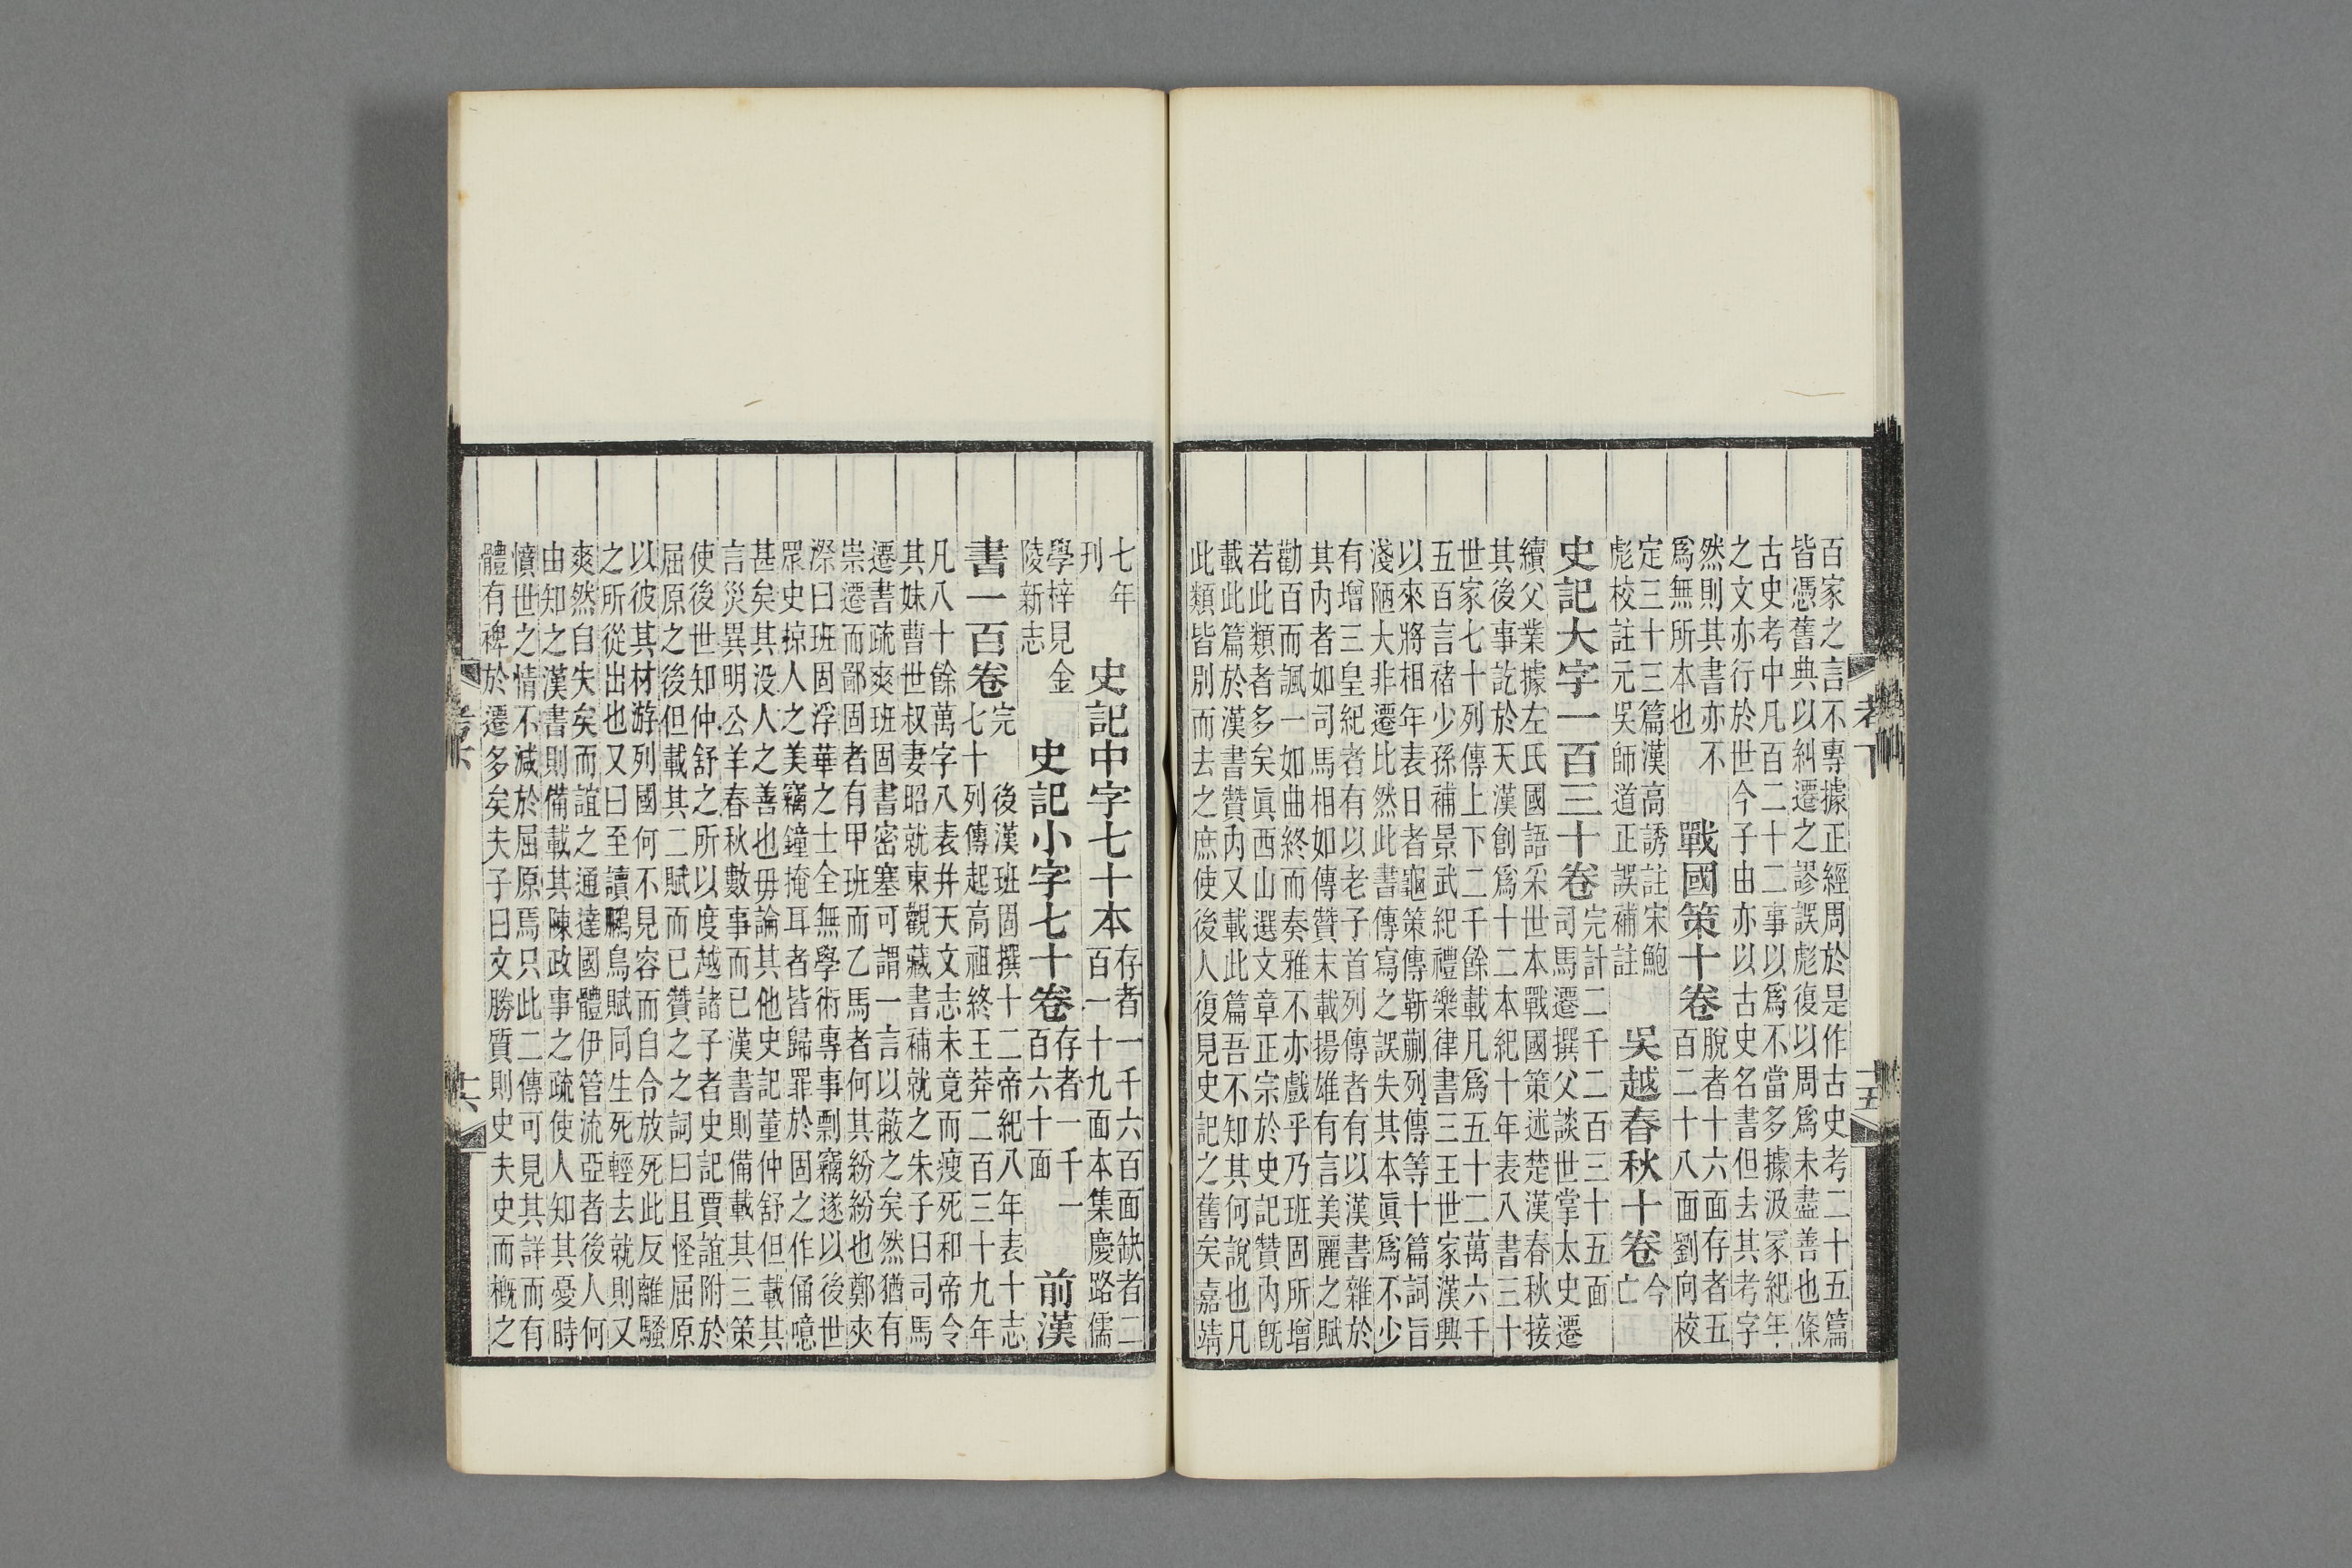 百家之言不專據正經周於是作古史考二十五篇
皆憑舊典以糾遷之謬誤彪復以周爲未盡善也條
古史考中凡百二十二事以爲不當多據汲冢紀年
之文亦行於世今子由亦以古史名書但去其考字
然則其書亦不
爲無所本也
戰國策十卷
脫者十六面存者五
百二十八面劉向校
定三十三篇漢高誘註宋鮑
彪校註元吳師道正誤補註
吳越春秋十卷
今
亡
史記大字一百三十卷
完計二千二百三十五面
司馬遷撰父談世掌太史遷
續父業據左氏國語采世本戰國策述楚漢春秋接
其後事訖於天漢創爲十二本紀十年表八書三十
世家七十列傳上下二千餘載凡爲五十二萬六千
五百言褚少孫補景武紀禮樂律書三王世家漢興
以來將相年表日者龜策傳靳蒯列傳等十篇詞旨
淺陋大非遷比然此書傳寫之誤失其本眞爲不少
有增三皇紀者有以老子首列傳者有以漢書雜於
其內者如司馬相如傳贊末載揚雄有言美麗之賦
勸百而諷一如曲終而奏雅不亦戲乎乃班固所增
若此類者多矣眞西山選文章正宗於史記贊內旣
載此篇於漢書贊內又載此篇吾不知其何說也凡
此類皆別而去之庶使後人復見史記之舊矣嘉靖
七年
刊
史記中字七十本
存者一千六百面缺者二
百一十九面本集慶路儒
學梓見金
陵新志
史記小字七十卷
存者一千一
百六十面
前漢
書一百卷
完
後漢班固撰十二帝紀八年表十志
七十列傳起高祖終王莽二百三十九年
凡八十餘萬字八表井天文志未竟而瘦死和帝令
其妹曹世叔妻昭就東觀藏書補就之朱子曰司馬
遷書疏爽班固書密塞可謂一言以蔽之矣然猶有
崇遷而鄙固者有甲班而乙馬者何其紛紛也鄭夾
漈曰班固浮華之士全無學術專事剽竊遂以後世
眾史掠人之美竊鐘掩耳者皆歸罪於固之作俑噫
甚矣其没人之善也毋論其他史記董仲舒但載其
言災異明公羊春秋數事而已漢書則備載其三策
使後世知仲舒之所以度越諸子者史記賈誼附於
屈原之後但載其二賦而已贊之之詞曰且怪屈原
以彼其材游列國何不見容而自令放死此反離騷
之所從出也又曰至讀鵩鳥賦同生死輕去就則又
爽然自失矣而誼之通達國體伊管流亞者後人何
由知之漢書則備載其陳政事之疏使人知其憂時
憤世之情不減於屈原焉只此二傳可見其詳而有
體有裨於遷多矣夫子曰文勝質則史夫史而概之